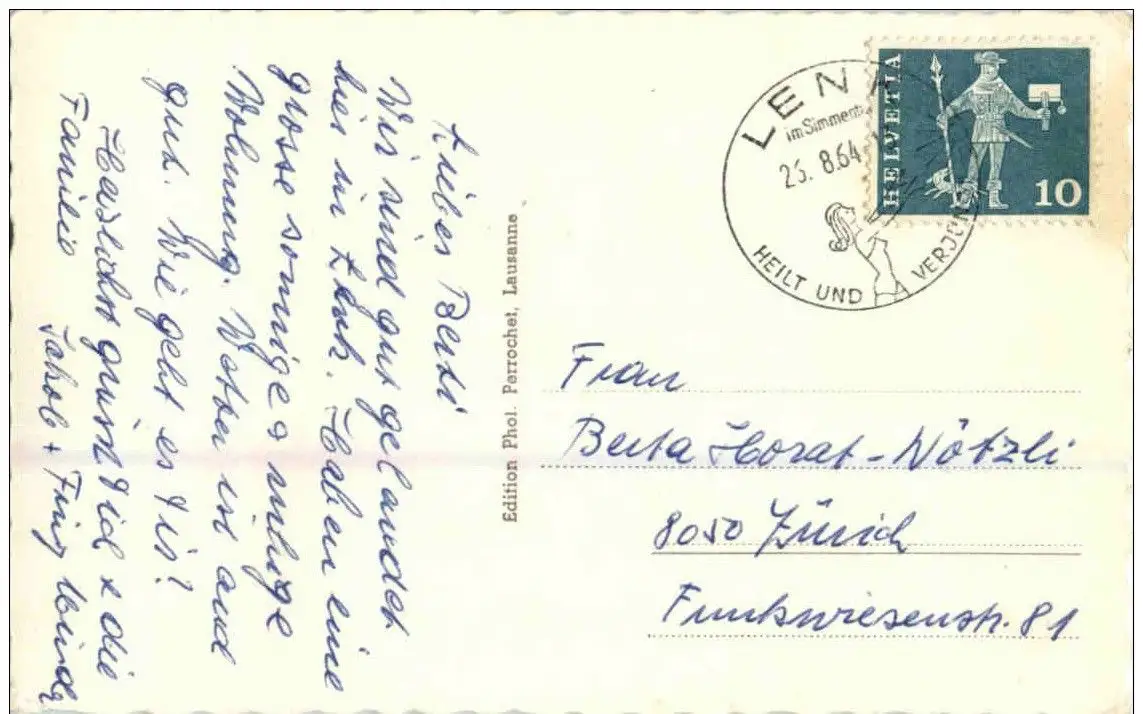 Liebes Berti
Wir sind gut gelandet
hier in Lenk. Haben eine
grosse sonnige & ruhige
Wohnung. Wetter ist auch
gut. Wie geht es Dir?
Herzlichst grüsst Dich & die
Familie Jakob + Finy
Edition Phot. Perrochet, Lausanne
LENK
im Simmental
8.64
HEILT UND VERJÜN
HELVETIA
10
Frau
Berta Horat-Nötzli
8050 Zürich
Funkwiesenstr. 81